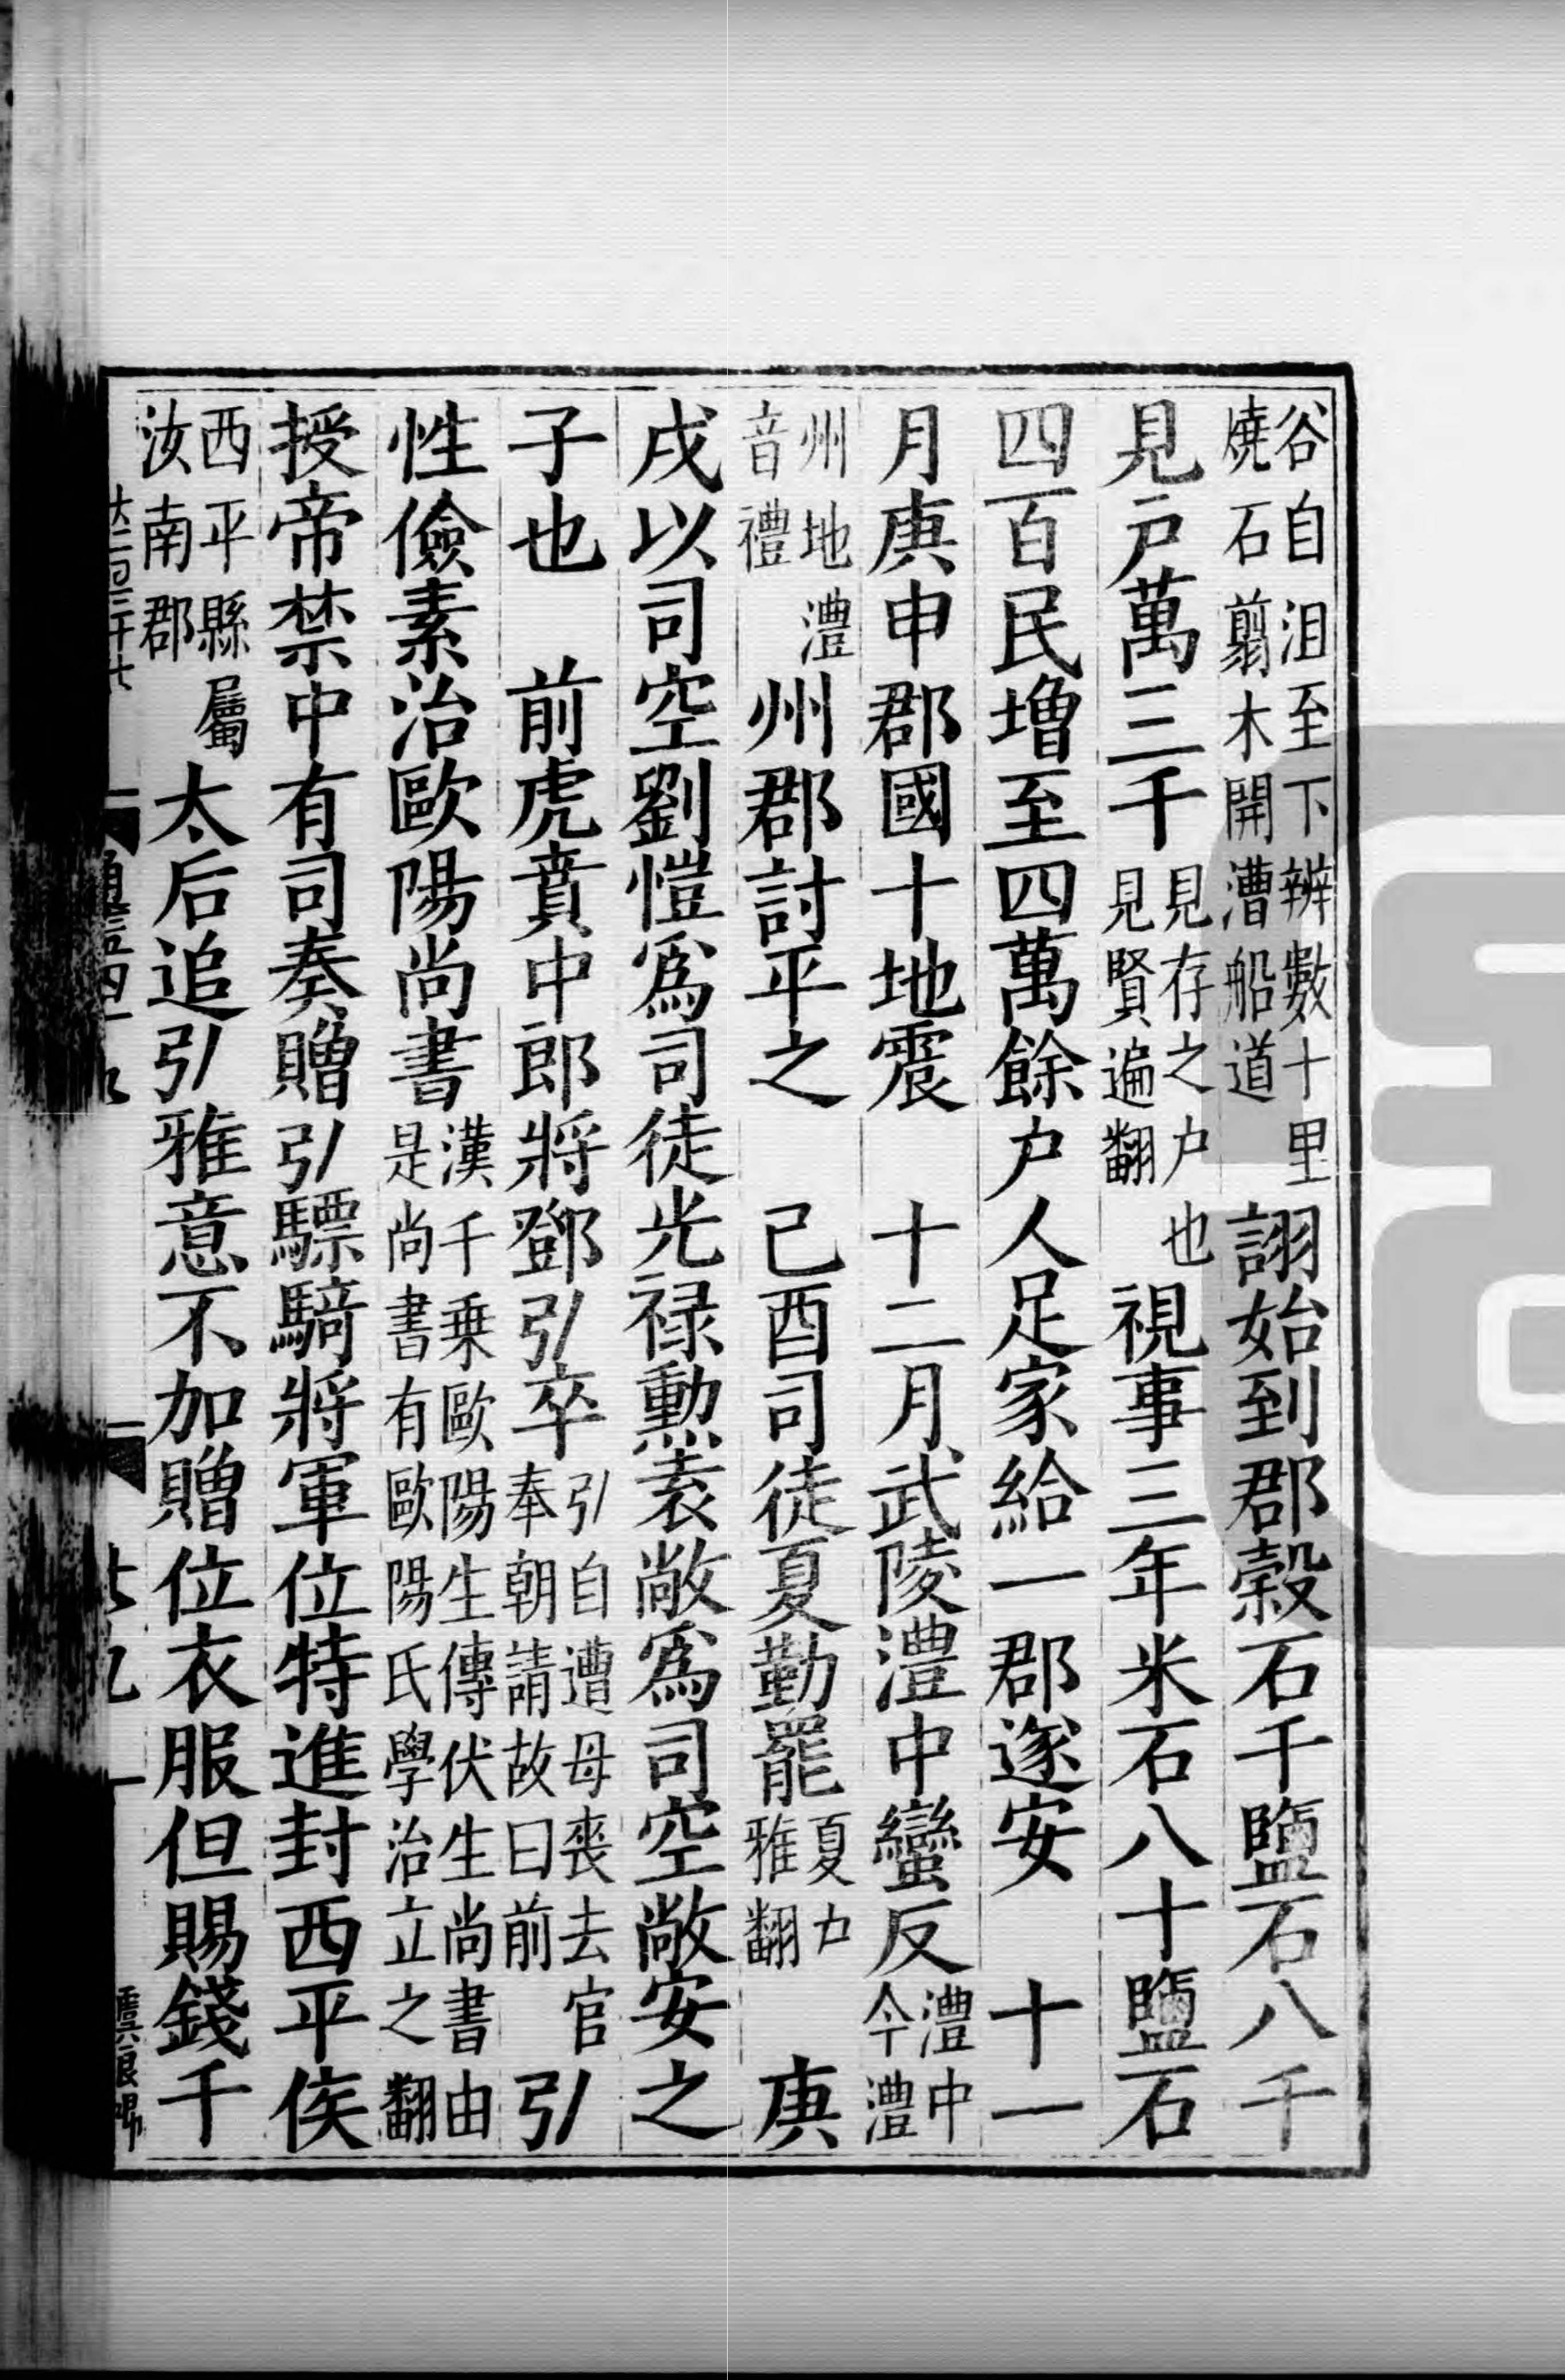 谷自沮至下辨數十里燒石翦木開漕船道詡始到郡穀石千鹽石八千
見戸萬三千見存之戸也見賢遍翻視事三年米石八十鹽石
四百民增至四萬餘户人足家給一郡遂安　十一
月庚申郡國十地震　十二月武陵澧中蠻反澧中今澧
州地澧音禮州郡討平之　己酉司徒夏勤罷夏力雅翻　庚
戌以司空劉愷爲司徒光禄勲袁敞爲司空敞安之
子也　前虎賁中郎將鄧引卒引自遭母喪去官奉朝請故曰前引
性儉素治歐陽尚書漢千乗歐陽生傳伏生尚書由是尚書有歐陽氏學治立之翻
授帝禁中有司奏贈引驃騎將軍位特進封西平侯
西平縣屬汝南郡太后追引雅意不加贈位衣服但賜錢千